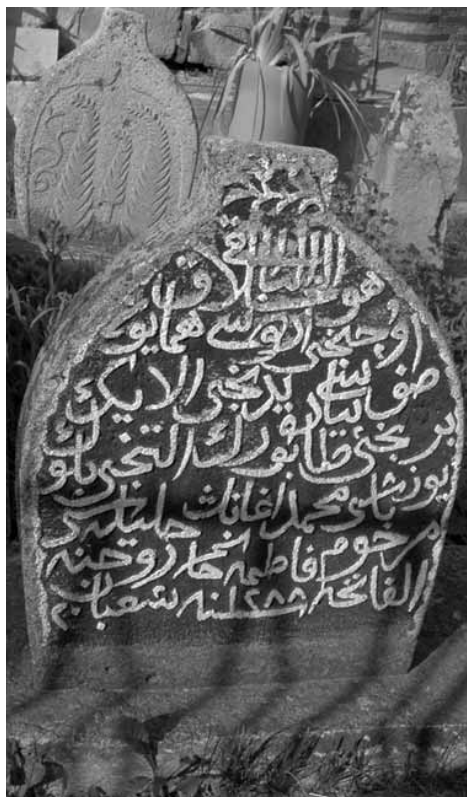 هو الخلاق الباقی
اوچنجی اردوی همایون
یدنجی الایك
برنجی طابورك التنجی بلوك
یوزباشی محمد اغانك حلیله سی
مرحوم فاطمه خانم روحنه
الفاتحه سنه ١٢٨٨ شعبان